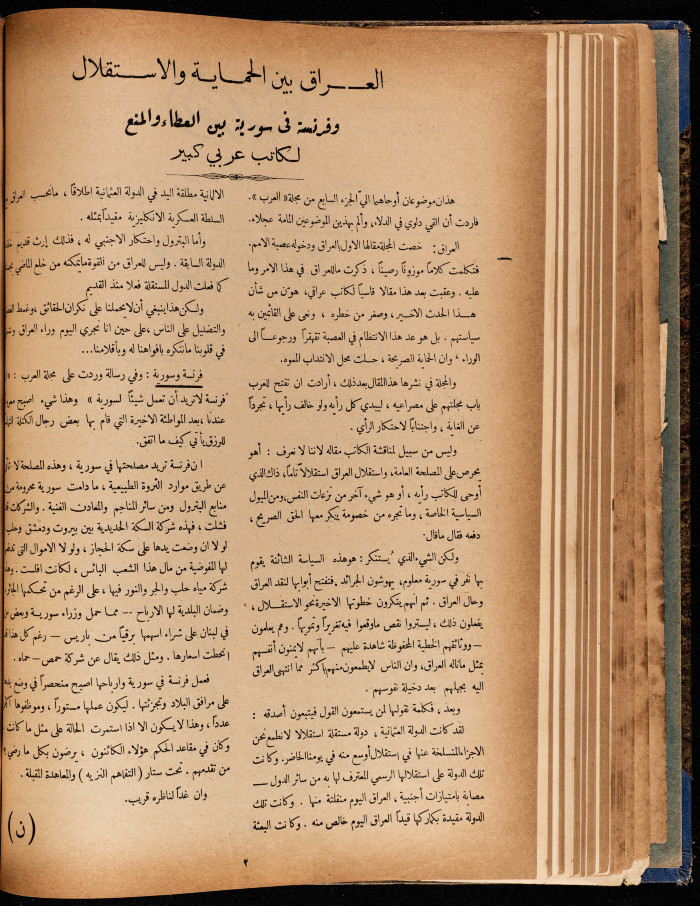 العـــراق بين الحمـاية والاسـتقلال
وفرنسة في سورية بين العطاء والمنع
لكاتب عربي كبير
هذان موضوعان أوحاهما اليّ الجزء السابع من مجلة « العرب ».
فاردت أن القي دلوي في الدلاء، وألم بهذين الموضوعين المامة عجلاء.
العراق : خصت المجلة مقالها الاول بالعراق ودخوله عصبة الامم.
فتكلمت كلاماً موزوناً رصيناً ، ذكرت ماللعراق في هذا الامر وما
عليه . وعقبت بعد هذا مقالا قاسياً لكاتب عراقي، هوّن من شأن
هـذا الحدث الاخـير، وصغر من خطره ، ونعى على القائمين به
سياستهم . بل هو عد هذا الانتظام في العصبة تقهقراً ورجوعـاً الى
الوراء ، وان الحماية الصريحة ، حـلت محل الانتداب المموه.
والمجلة في نشرها هذا المقال بعد ذلك ، أرادت ان تفتح للعرب
باب مجلتهم على مصراعيه ، ليبدي كل رأيه ولو خالف رأيها ، تجرداً
عن الغاية ، واجتناباً لاحتكار الرأي .
وليس من سبيل لمناقشة الكاتب مقاله لاننا لا نعرف : أهو
يحرص على المصلحة العامة، واستقلال العراق استقلالاً تاماً، ذاك الذي
أوحى للكاتب رأيه ، أو هو شيء آخر من نزعات النفس، ومن الميول
السياسية الخاصة ، وما تجره من خصومة ينكر معها الحق الصريح ،
دفعه فقال ماقال.
ولكن الشيء الذي يُستنكر : هو هذه السياسة الشائنة يقوم
بها نفر في سورية معلوم، يهوشون الجرائد فتفتح أبوابها لنقد العراق
وحال العراق . ثم انهم ينكرون خطوتها الاخيرة نحو الاستقـلال ،
يفعلون ذلك ، ليستروا نقص ماوقعوا فيه تغريراً وتمويهاً . وهم يعلمون
— ووثائقهم الخطية المحفوظة شاهدة عليهم — بأنهم لايمنون أنفسهم
بمثل ماناله العراق، وان الناس لايطمعون منهم باكثر مما انتهى العراق
اليه بجهلهم بعد دخيلة نفوسهم .
وبعد ، فكلمة نقولها لمن يستمعون القول فيتبعون أصدقه :
لقد كانت الدولة العثمانية ، دولة مستقلة استقلالا لانطمع نحن
الاجزاء المنسلخة عنها في إستقلال أوسع منه في يومنا الحاضر. وكانت
تلك الدولة على استقلالها الرسمي المعترف لها به من سائر الدول —
مصابة بامتيازات أجنبية ، العراق اليوم منفلتة منها . وكانت تلك
الدولة مقيدة بكماركها قيداً العراق اليوم خالص منه . وكانت البعثة
الالمانية مطلقة اليد في الدولة العثمانية اطلاقاً ، مانحسب العراق
السلطة العسكرية الانكليزية مقيداً بمثله .
وأما البترول واحتكار الاجنبي له ، فذلك إرث قديم
الدولة السابقة . وليس للعراق من القوة ماتمكنه من خلع الماضي
كما فعلت الدول المستقلة فعلا منذ القديم
ولكن هذا ينبغي أن لايحملنا على نكران الحقائق ، وغمط
والتضليل على الناس ، على حين اننا نجري اليوم وراء العراق
في قلوبنا ماننكره بافواهنا له وبأقلامنا...
فرنسة وسورية : وفي رسالة وردت على مجلة العرب :
فرنسة لاتريد أن تعمل شيئاً لسورية » وهذا شيء اصبح
عندنا ، بعد المواطئة الاخيرة التي قام بها بعض رجال الكتلة
للرزق يأتي كيف ما اتفق.
ان فرنسة تريد مصلحتها في سورية ، وهذه المصلحة
عن طريق موارد الثروة الطبيعية ، ما دامت سورية محرومة من
منابع البترول ومن سائر المناجم والمعادن الغنية . والشركات
فشلت ، فهذه شركة السكة الحديدية بين بيروت ودمشق وحلب
لولا ان وضعت يدها على سكة الحجاز ، ولولا الاموال التي
لها المفوضية من مال هذا الشعب البائس ، لكانت افلست .
شركة مياه حلب والجر والنور فيها ، على الرغم من تحكمها
وضمان البلدية لها الارباح -- ممـا حمل وزراء سوريـة وبعض
في لبنان على شراء اسهمها برقياً من باريس — رغم كل هذا
إنحطت اسعارها . ومثل ذلك يقال عن شركة حمص – حماه .
فعمل فرنسة في سورية وارباحها اصبح منحصراً في وضع
على مرافق البلاد وتجزئتها . ليكون عملها مستوراً ، وموظفوها
عدداً ، وهذا لا يكون الا اذا استمرت الحالة على مثل ما كانت
وكان في مقاعد الحكم هؤلاء الكائنون ، يرضون بكل ما رضي
من تقدمهم . تحت ستار ( التفاهم النزيه ) والمعاهدة المقبلة .
وان غداً لناظره قريب.
(ن)
٢